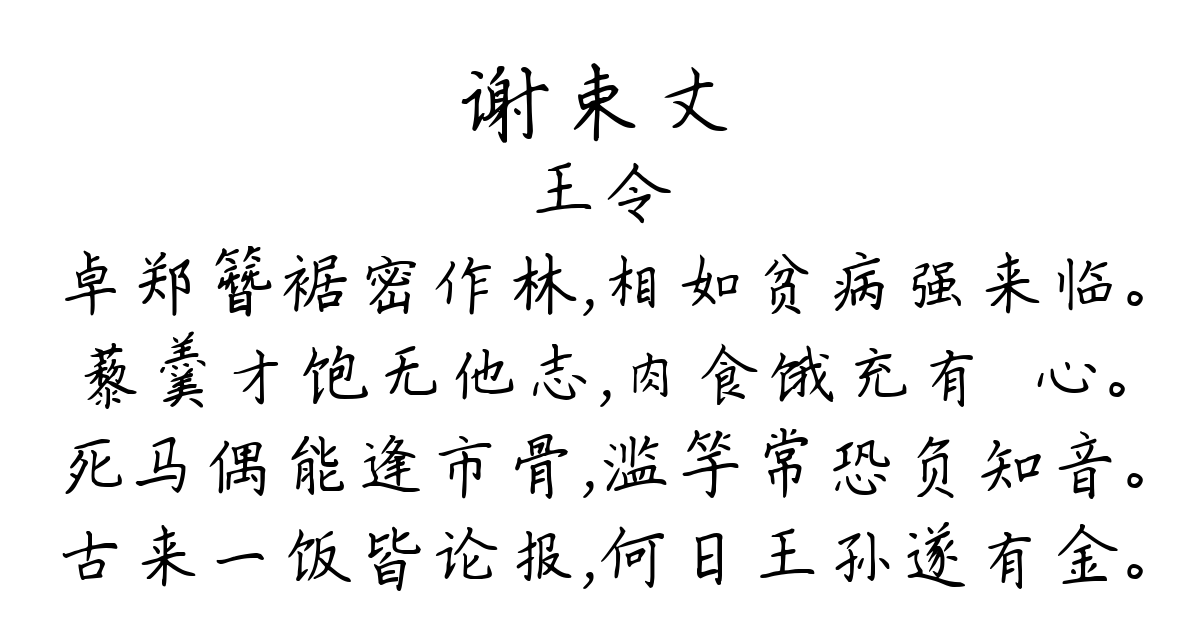 谢束丈
王令
卓郑簪裾密作林,相如贫病强来临。
藜羹才饱无他志,肉食饿充有 心。
死马偶能逢市骨,滥竽常恐负知音。
古来一饭皆论报,何日王孙遂有金。